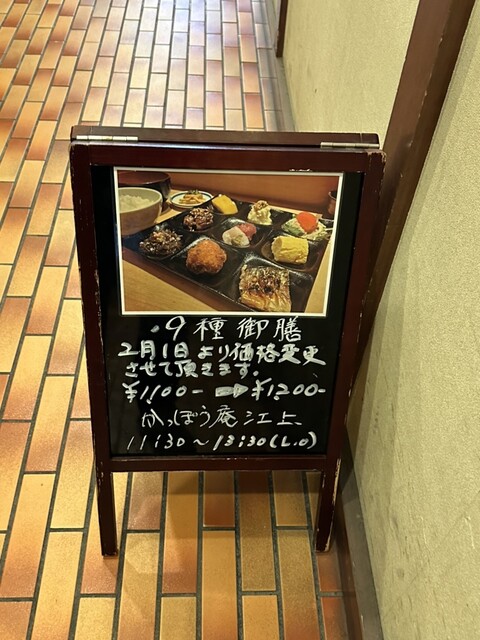 ・9種御膳
2月1日より価格変更
させて頂きます。
¥1,100- ➡ ¥1,200-
かっぽう庵江上、
11:30〜13:30(L.O)